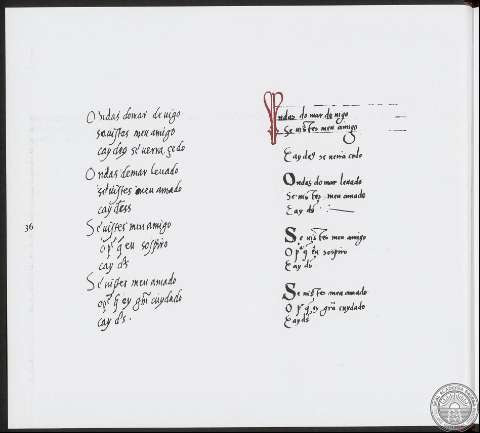 Ondas domar de uigo
seuistes meu amigo
cay deꝯ se uerra çedo
Ondas demar leuado
seuistes meu amado
cay dess
Se uistes meu amigo
o p̃ q̃ eu sospiro
cay ds̃
Se uistes meu amado
op̃ q̃ ey grã cuydado
cay ds̃.
36
Ondas do mar de uigo
Se uistes meu amigo
Eay deꝯ se uerra cedo
Ondas do mar leuado
Se uistes meu amado
Eay ds̃
Se uistes meu amigo
O p̃ q̃ eu sospiro
Eay ds̃
Se uistes meu amado
O p̃ q̃ ey grã cuydado
Eay ds̃